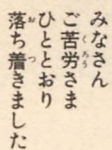 みなさん
ご苦労さま
ひととおり
落ち着きました